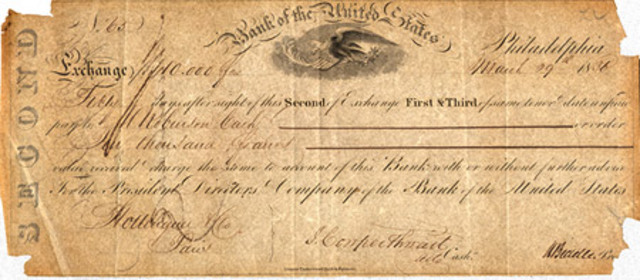 No. 65
Bank of the United States
Philadelphia
Exchange 10.000
March 29th 18
SECOND
days after sight of this Second of Exchange First & Third of same tenor & date unpaid
pay to Robinson Cash or order
Ten thousand francs
value received & charge the same to account of this Bank with or without further advice
For the President Directors & Company of the Bank of the United States
Hottinguer & Co
Paris
J. Cowperthwait
Cash
N Biddle Pre